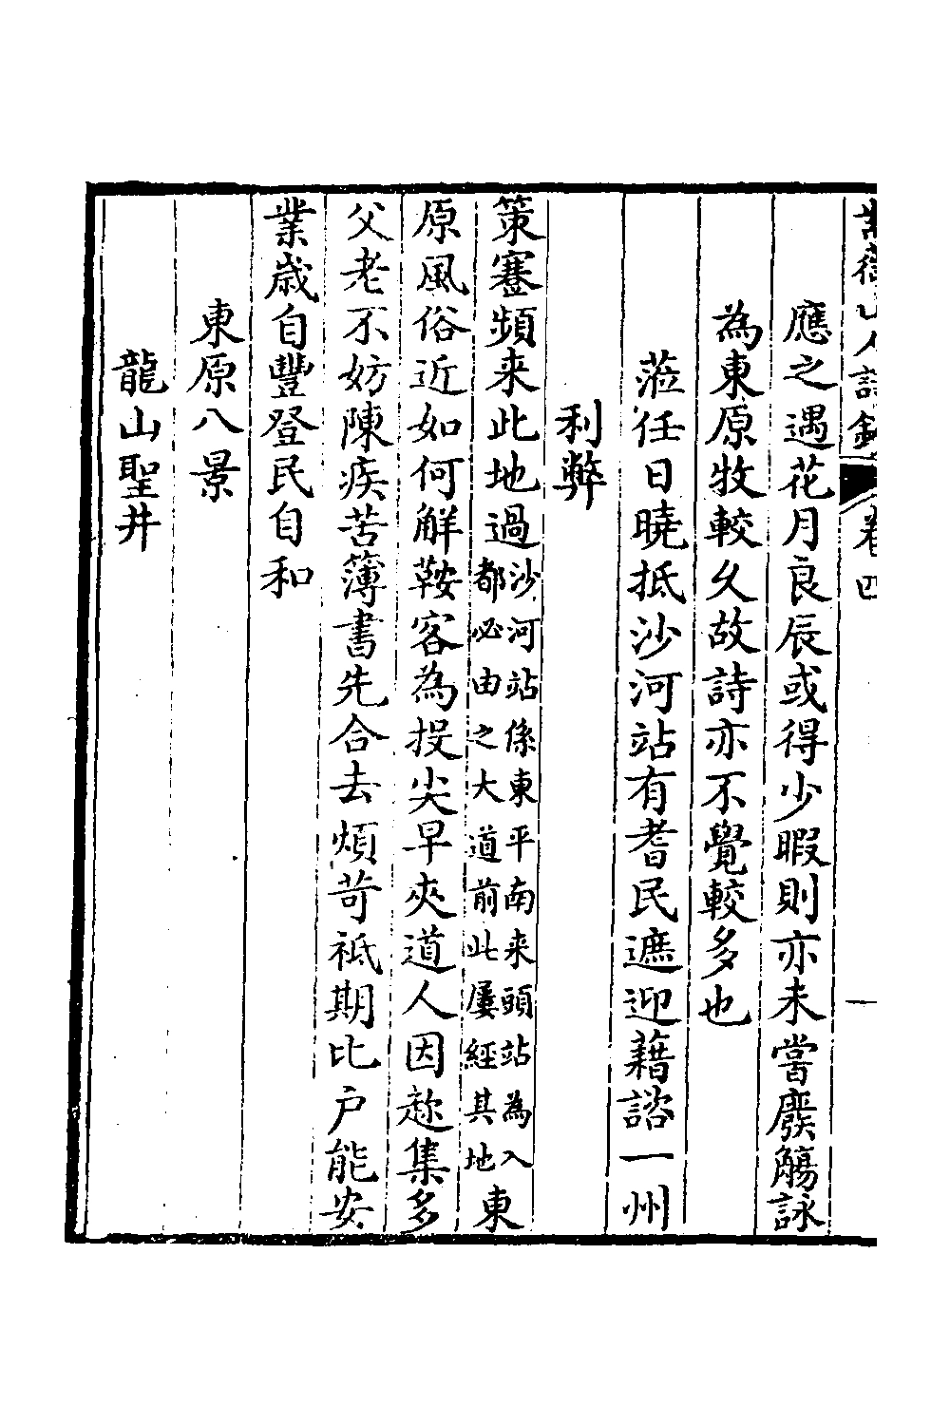 山人詩鈔 卷四
應之遇花月良辰或得少暇則亦未嘗廢觴詠
為東原牧較久故詩亦不覺較多也
蒞任日曉抵沙河站有耆民遮迎藉諮一州
利弊
策蹇頻来此地過沙河站係東平南来頭站為入都必由之大道前此屢經其地東
原風俗近如何解鞍客為投尖早夾道人因趂集多
父老不妨陳疾苦簿書先合去煩苛祗期比戶能安
業歲自豐登民自和
東原八景
龍山聖井